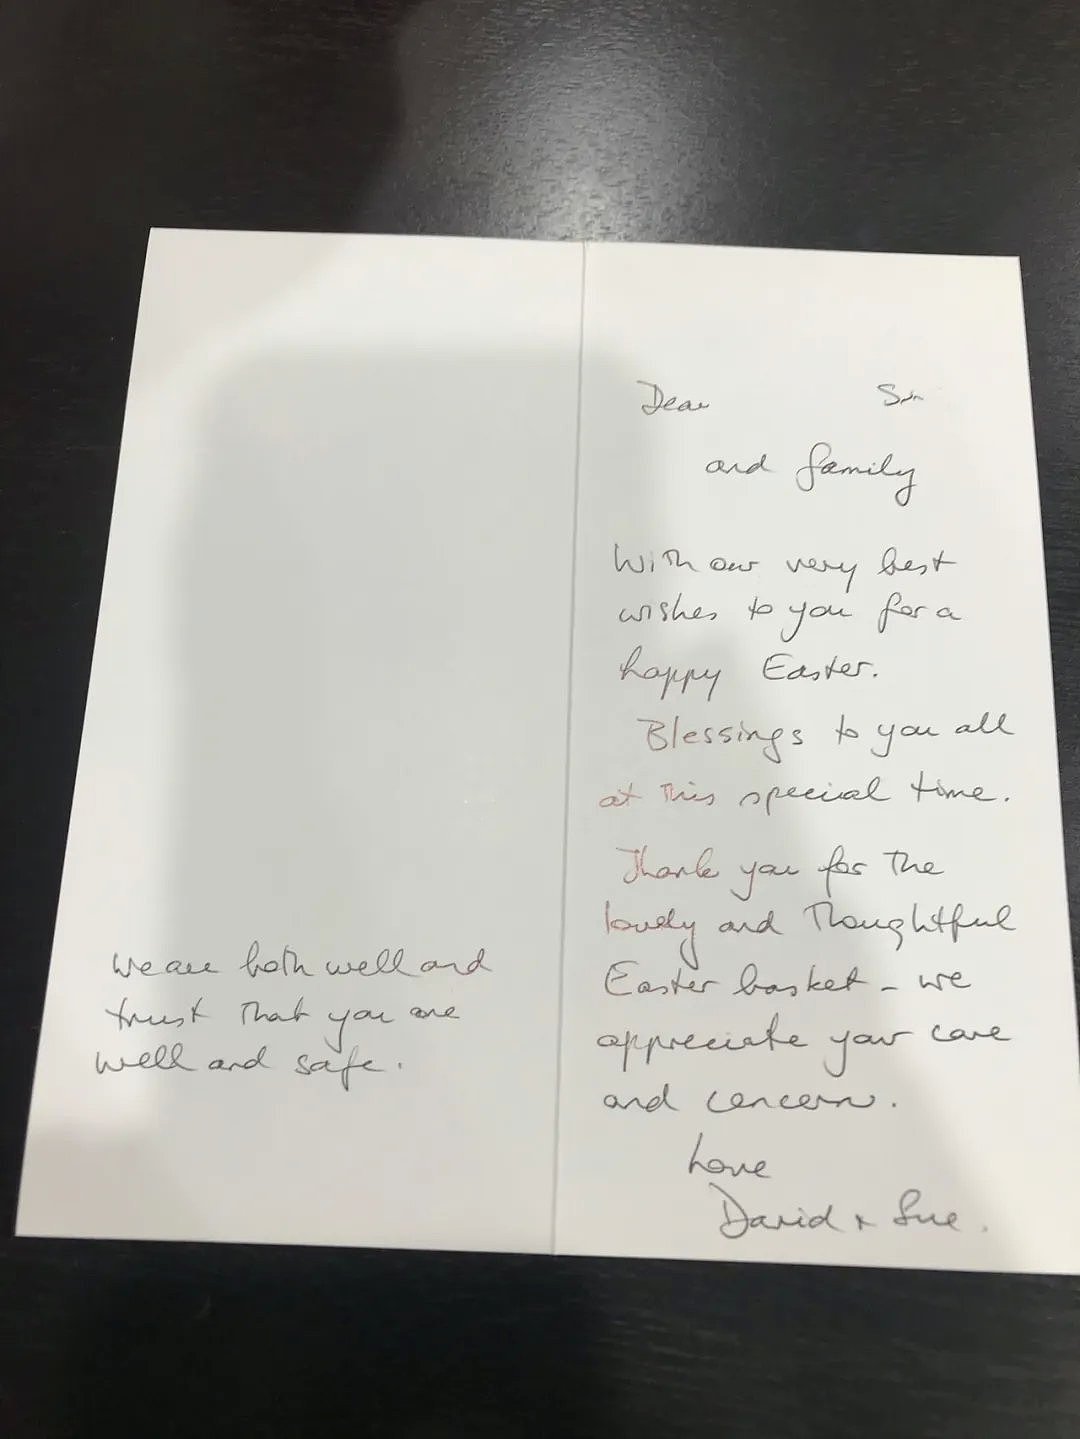 Dear
and family
With our very best
wishes to you for a
happy Easter.
Blessings to you all
at this special time.
Thank you for the
lovely and thoughtful
Easter basket - we
appreciate your care
and concern.
Love
David + Sue.
We are both well and
trust that you are
well and safe.